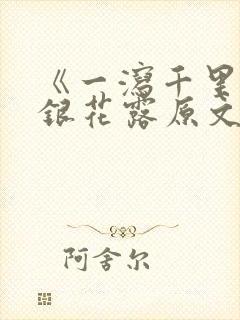 《一泻千里
银花露原文
阿舍尔